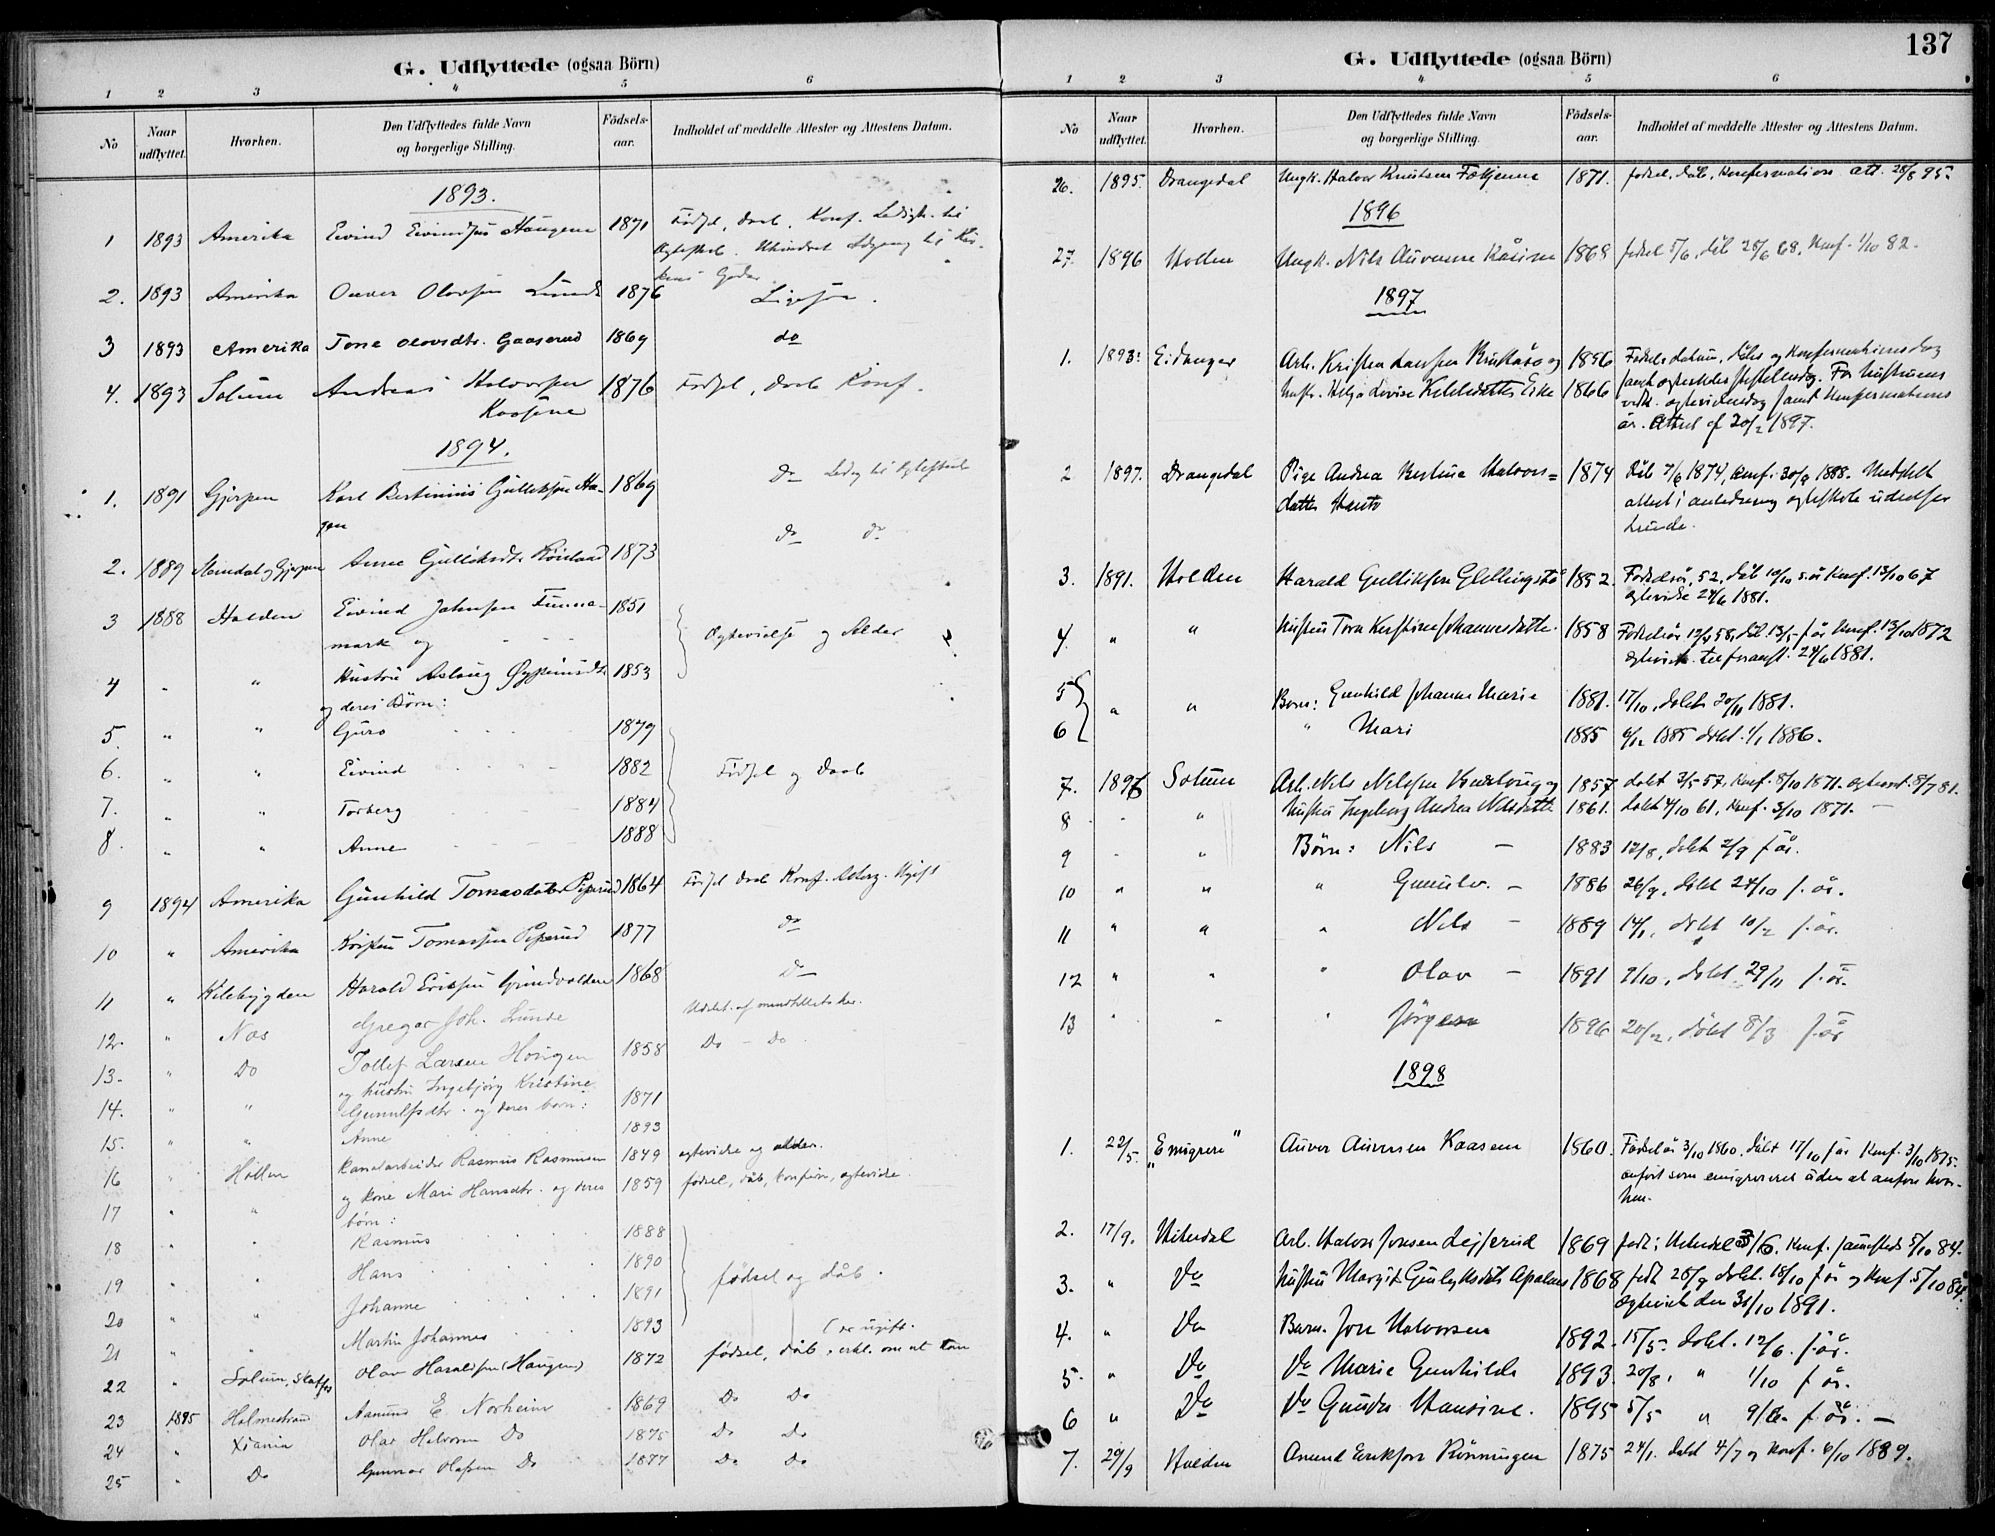 G. Udflyttede (ogsaa Börn)
1 2 3 4 5 6
No
Naar udflyttet.
Hvorhen.
Den Udflyttedes fulde Navn og borgerlige Stilling.
Födselsaar.
Indholdet af meddelte Attester og Attestens Datum.
1893.
1 1893 Amerika Eivind Eivindsen Haugene 1871 Födsel, Daab, Konf. Ledigh. til
Ægteskab. Uhindret Adgang til Kir-
kens Goder
2. 1893 Amerika Olavsen Lunde 1876 Ligesaa.
3 1893 Amerika Tone Olavsdtr. Gaaserud 1869 do
4. 1893 Solum Andreas Halvorsen 1876 Födsel, Daab Konf.
Kaasene
1894.
1. 1891 Gjerpen Karl Bertinius Gulliksen Ha- 1869 Do Ledig til Ægteskab
gen
2. 1889 og Gjerpen Anne Gulliksdtr. 1873 Do Do
3 1888 Holden Eivind Johnsen Finne- 1851
mark og Ægtevielse og Alder
4 " " Hustru Aslaug 1853
og deres Börn:
5. " " Guro 1879
6. " " Eivind 1882 Födsel og Daab
7. " " Torberg 1884
8. " " Anne 1888
9 1894 Amerika Gunhild Tomasdatter Piperud 1864 Födsel Daab Konf. Ugift
10 " Amerika Kristen Tomassen Piperud 1877 Do
11 " Kilebygden Harald Eriksen Grindvolden 1868 Do
12. " Næs Gregar Joh. Lunde
13. " Do Tollef Larsen Haugen 1858 Do - Do
14. " " og hustru Ingebjörg Kristine
Gunnulfsdtr. og deres barn: 1871
15. " " Anne 1893
16 " Hollen Kanalarbeider Rasmus Rasmusen 1849 ægtevielse og alder.
17 " " og kone Mari Hansdtr. og deres 1859 födsel, dåb, konfirm, ægtevielse
börn:
18 " " Rasmus 1888
19 " " Hans 1890 födsel og dåb.
20 " " Johanne 1891
21 " " Martin Johannes 1893 (er ugift.
22 " Solum, Skotfos Olav Haraldsen (Haugen) 1872 födsel, dåb, erkl. om at han
23 1895 Holmestrand Aanund E Norheim 1869 Do Do
24 " Xiania Olav Halvorsen Do 1875 Do Do
25 " Do Gunnar Olafsen Do 1877 Do Do
137
G. Udflyttede (ogsaa Börn)
1 2 3 4 5 6
No
Naar udflyttet.
Hvorhen.
Den Udflyttedes fulde Navn og borgerlige Stilling.
Födselsaar.
Indholdet af meddelte Attester og Attestens Datum.
26. 1895. Drangedal Ungk. Halvor Knutsen 1871. födsel, dåb, konfirmation att. 28/8 95.
1896
27. 1896 Hollen Ungk. Nils Auversen Kåsine 1868 födsel 5/6, dåb 28/6 68. Konf. 1/10 82.
1897
1. 1893: Eidanger Arb. Kristen Larssen og 1856 Födselsdatum, dåbs og konfirmationsdag
hustr. Helga Lovise Kittilsdatter Eike 1866 samt ægteskabs stiftelsesdag. For hustruens
vedk. ægtevielsesdag samt konfirmations
år. Attest af 20/2 1897.
2 1897. Drangedal Pige Andrea Bertine Halvors= 1874 Dåb 7/6 1874, konf. 30/9 1888. Meddelt
datter attest i anledning ægteskabs indgåelse
3. 1891. Holden Harald Gulliksen 1852. Födselsår 52, dåb 10/10 s. år Konf. 13/10 67
Ægtevidte 24/6 1881.
4. " " hustru Tora Kirstine Johannesdatter. 1858 Födselsår 12/4 58, döbt 13/5 f år Konf. 13/10 1872
24/6 1881.
5 " " Born: Gunhild Johanne Marie 1881. 17/10, døbt 20/11 1881.
6 " Mari 1885 6/12 1885 døbt 1/1 1886.
7. 1896 Solum Arb. Nils Nilssen og 1857 døbt 3/5 57, Konf. 8/10 1871. 8/7 81.
8 " " hustru Ingeborg Andrea Nilsdatter 1861. døbt 4/10 61, Konf. 3/10 1871. —
9 " " Börn: Nils — 1883 12/8, døbt 2/9 f år.
10 " " " Gunulv. — 1886 26/9, döbt 24/10 s. år.
11 " " " Nils — 1889 14/1, döbt 10/2 s. år.
12 " " " Olav — 1891 9/10, döbt 29/11 s. år.
13 " " " Jörgen 1896 20/2, döbt 8/3 s år
1898
1. 22/5. "Emigrere" Auver Auversen Kaasene 1860. Födselsår 3/10 1860. Döbt 17/10 s år Konf. 3/10 1875.
anfört som emigreret uden at anføre hvor-
hen.
2. 17/9. Hiterdal Arb. Halvor Jonsen 1869 födt i Hiterdal 3/6. Konf. sammesteds 5/10 84.
3. " Do hustru Margit 1868 födt 28/9 döbt. 18/10 s år og Konf. 5/10 84.
Ægteviet den 31/10 1891.
4. " Do Barn. Jon Halvorsen 1892. 15/5. döbt. 12/6. s. år.
5. " Do Do Marie Gunhilde 1893. 20/8, " 1/10 s år.
6 " Do Do Gunda Hansine. 1895 5/5 " 9/6 s. år. —
7. 29/9 Holden Amund Erikssen Rönningen 1875 24/1. Døbt 4/7 og Konf. 6/10 1889.